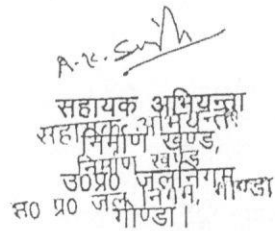 A.K. Singh
सहायक अभियन्ता
सहायक अभियन्ता
निर्माण खण्ड,
निर्माण खण्ड
उ0प्र0 जलनिगम
उ0 प्र0 जल निगम, गोण्डा
गोण्डा।